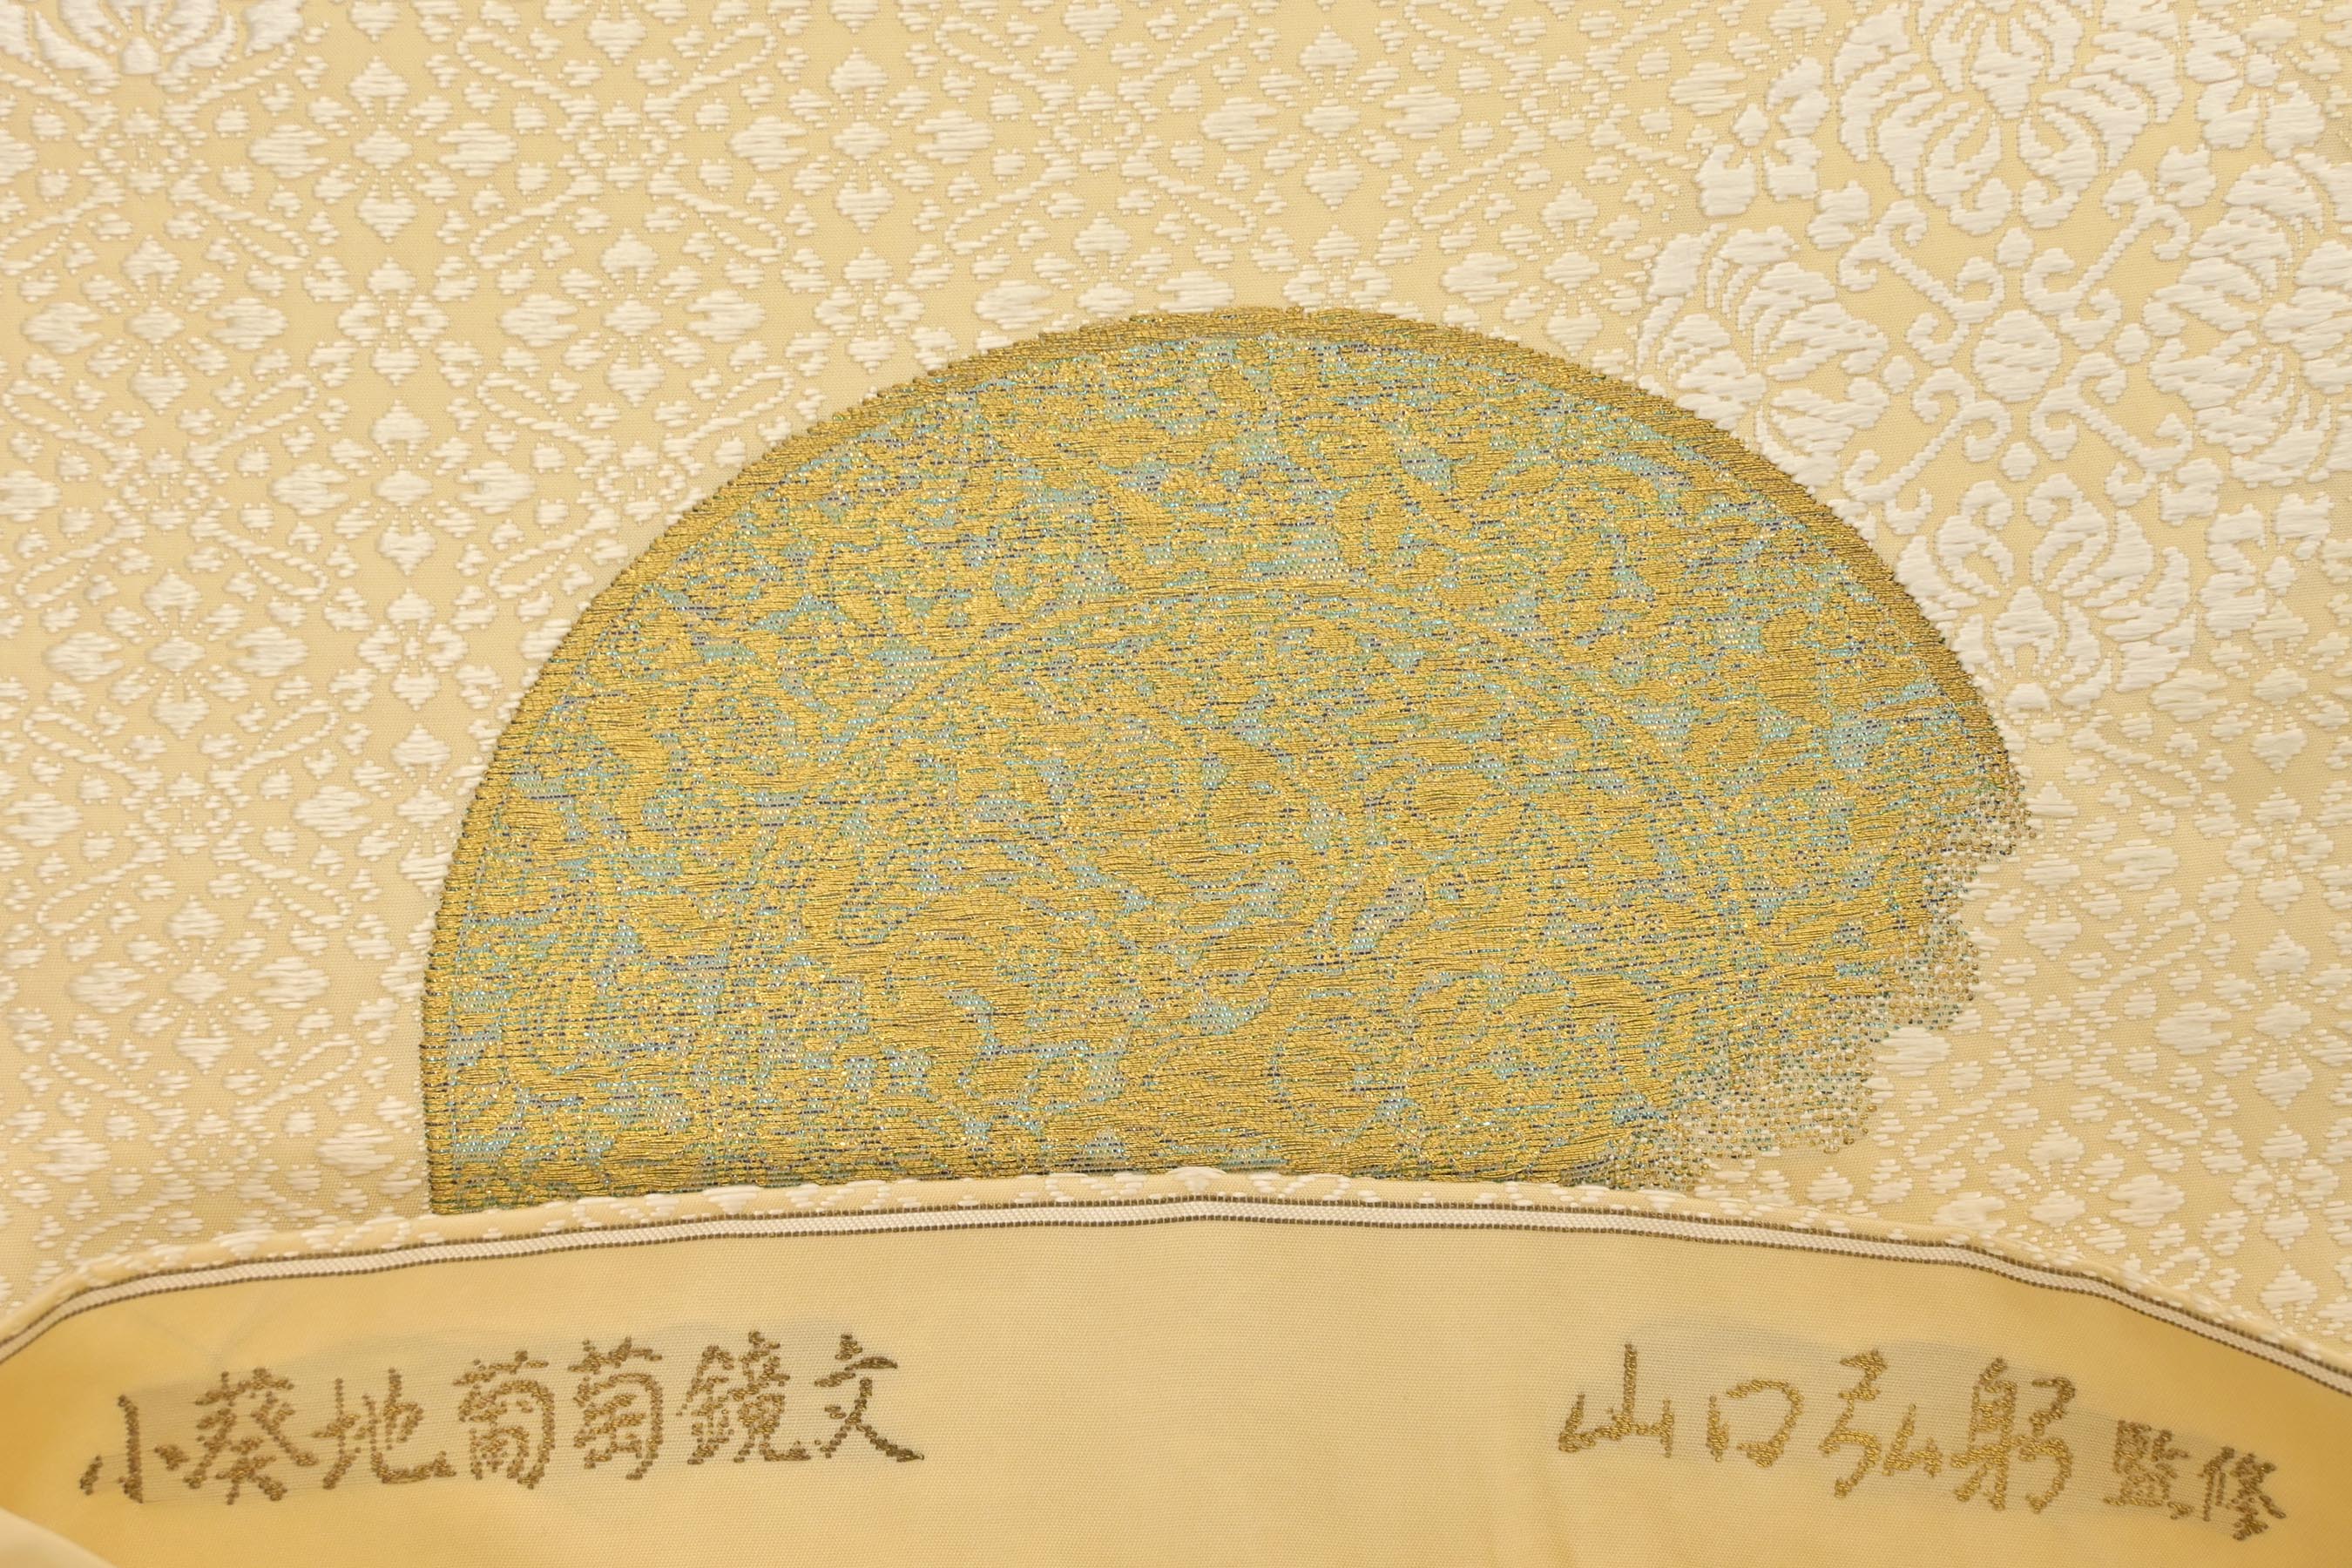 小葵地葡萄鏡文
山口弘躬監修